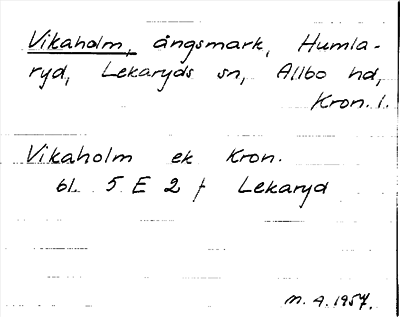 Vikaholm, ängsmark, Humla-
ryd, Lekaryds sn, Allbo hd,
Kron. l.
Vikaholm ek Kron.
bl. 5 E 2 f Lekaryd
M. 4. 1957.